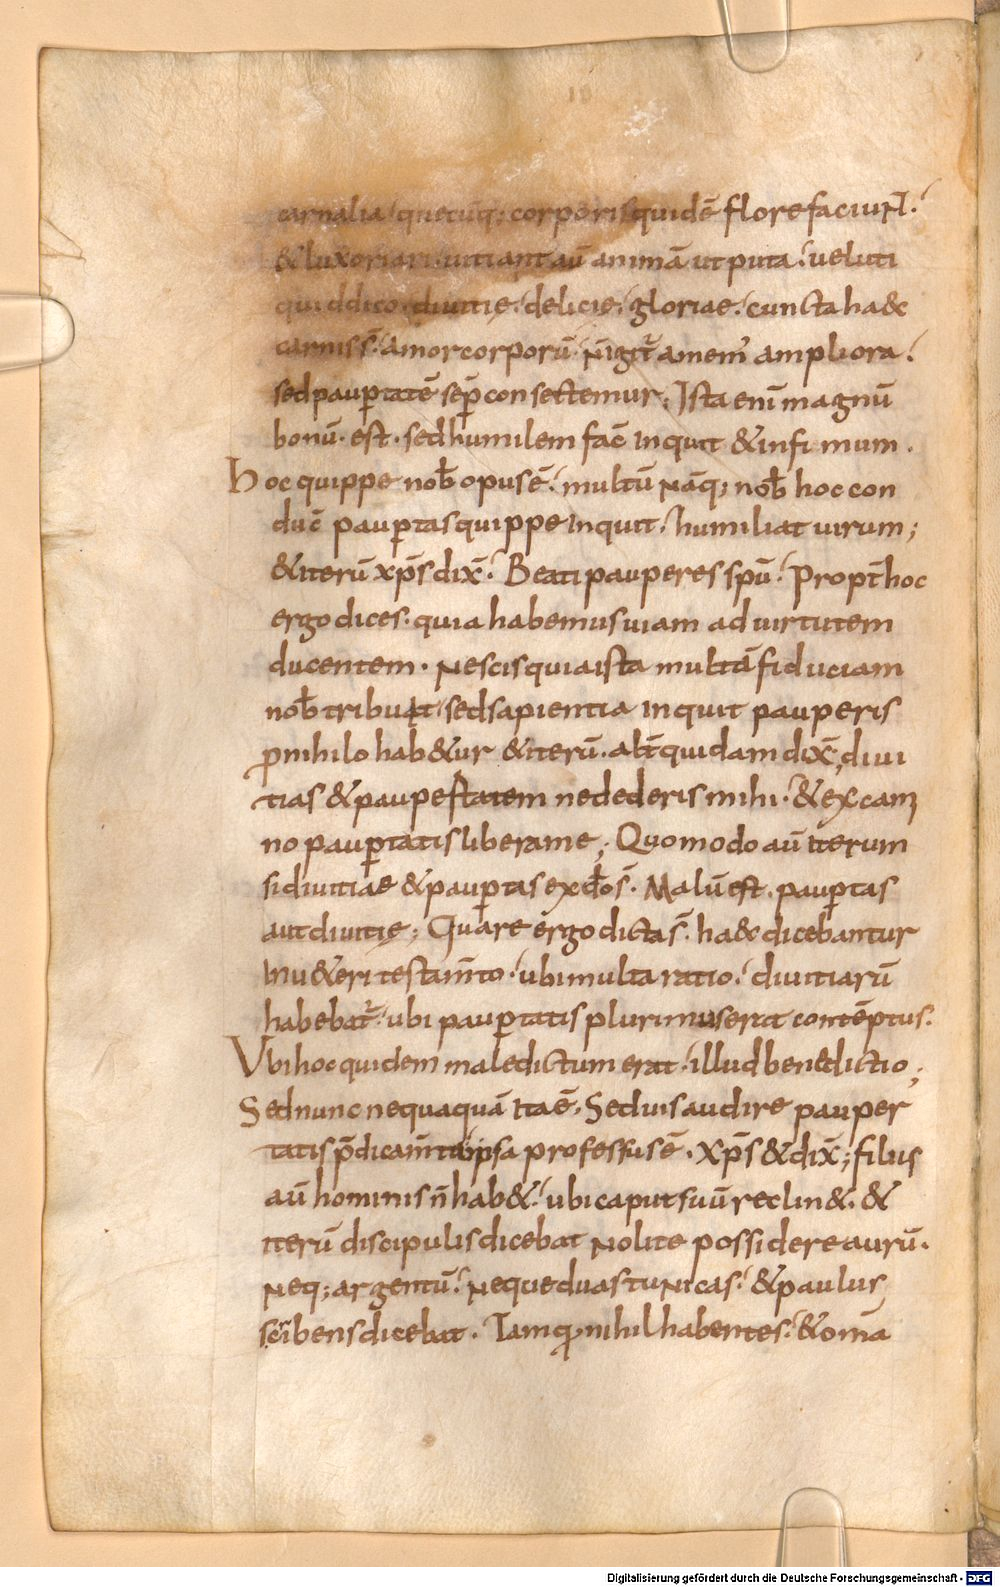 carnalia quecūq; corporis quidē florefaciunt.
& luxoriari. uitiant aū animā ut puta. ueluti
quid dico. diuitie. delicie. gloriae. cuncta haec
carnis s̄. amor corporū. N̄ igit̄ amem̄ ampliora.
sed paup̱tatē sēp̱ consectemur; Ista enī magnū
bonū. est. sed humilem facē inquit & infimum.
Hoc quippe nob̄ opus ē. multū nāq; nob̄ hoc con
ducē paup̱tas quippe inquit. humiliat uirum;
& iterū xp̄s dix̄. Beati pauperes spū. Propt̄ hoc
ergo dices. quia habemus uiam ad uirtutem
ducentem. Nescis quia ista multā fiduciam
nob̄ tribuat sed sapientia inquit pauperis
p̱ nihilo hab&ur & iterū. alt̄ quidam dix̄; diui
tias & paupestatem ne dederis mihi. & ex cam
no paup̱tatis libera me; Quomodo aū iterum
si diuitiae & paup̱tas ex dō s̄. Malū est. paup̱tas
aut diuitie; Quare ergo dicta s̄. haec dicebantur
in u&eri testam̄to. ubi multa ratio. diuitiarū
habebat̄. ubi paup̱tatis plurimus erat contēptus.
Vbi hoc quidem maledictum erat. illud benedictio;
Sed nunc nequaquā ita ē. Sed uis audire pauper
tatis p̄dicam̄ta ipsa professus ē. Xp̄s & dix̄; filius
aū hominis n̄ hab&. ubi caput suū reclin&. &
iterū discipulis dicebat Nolite possidere aurū.
Neq; argentū. Neque duas tunicas. & paulus
scribens dicebat. Tamq̄ nihil habentes. & omā
Digitalisierung gefördert durch die Deutsche Forschungsgemeinschaft - DFG